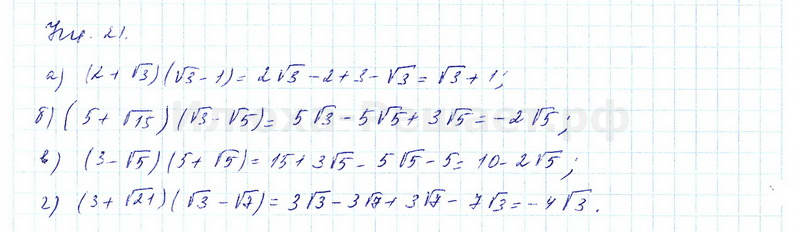 Упр. 21.
а) (2 + √3)(√3 - 1) = 2√3 - 2 + 3 - √3 = √3 + 1;
б) (5 + √15)(√3 - √5) = 5√3 - 5√5 + 3√5 = -2√5;
в) (3 - √5)(5 + √5) = 15 + 3√5 - 5√5 - 5 = 10 - 2√5;
г) (3 + √21)(√3 - √7) = 3√3 - 3√7 + 3√7 - 7√3 = -4√3.